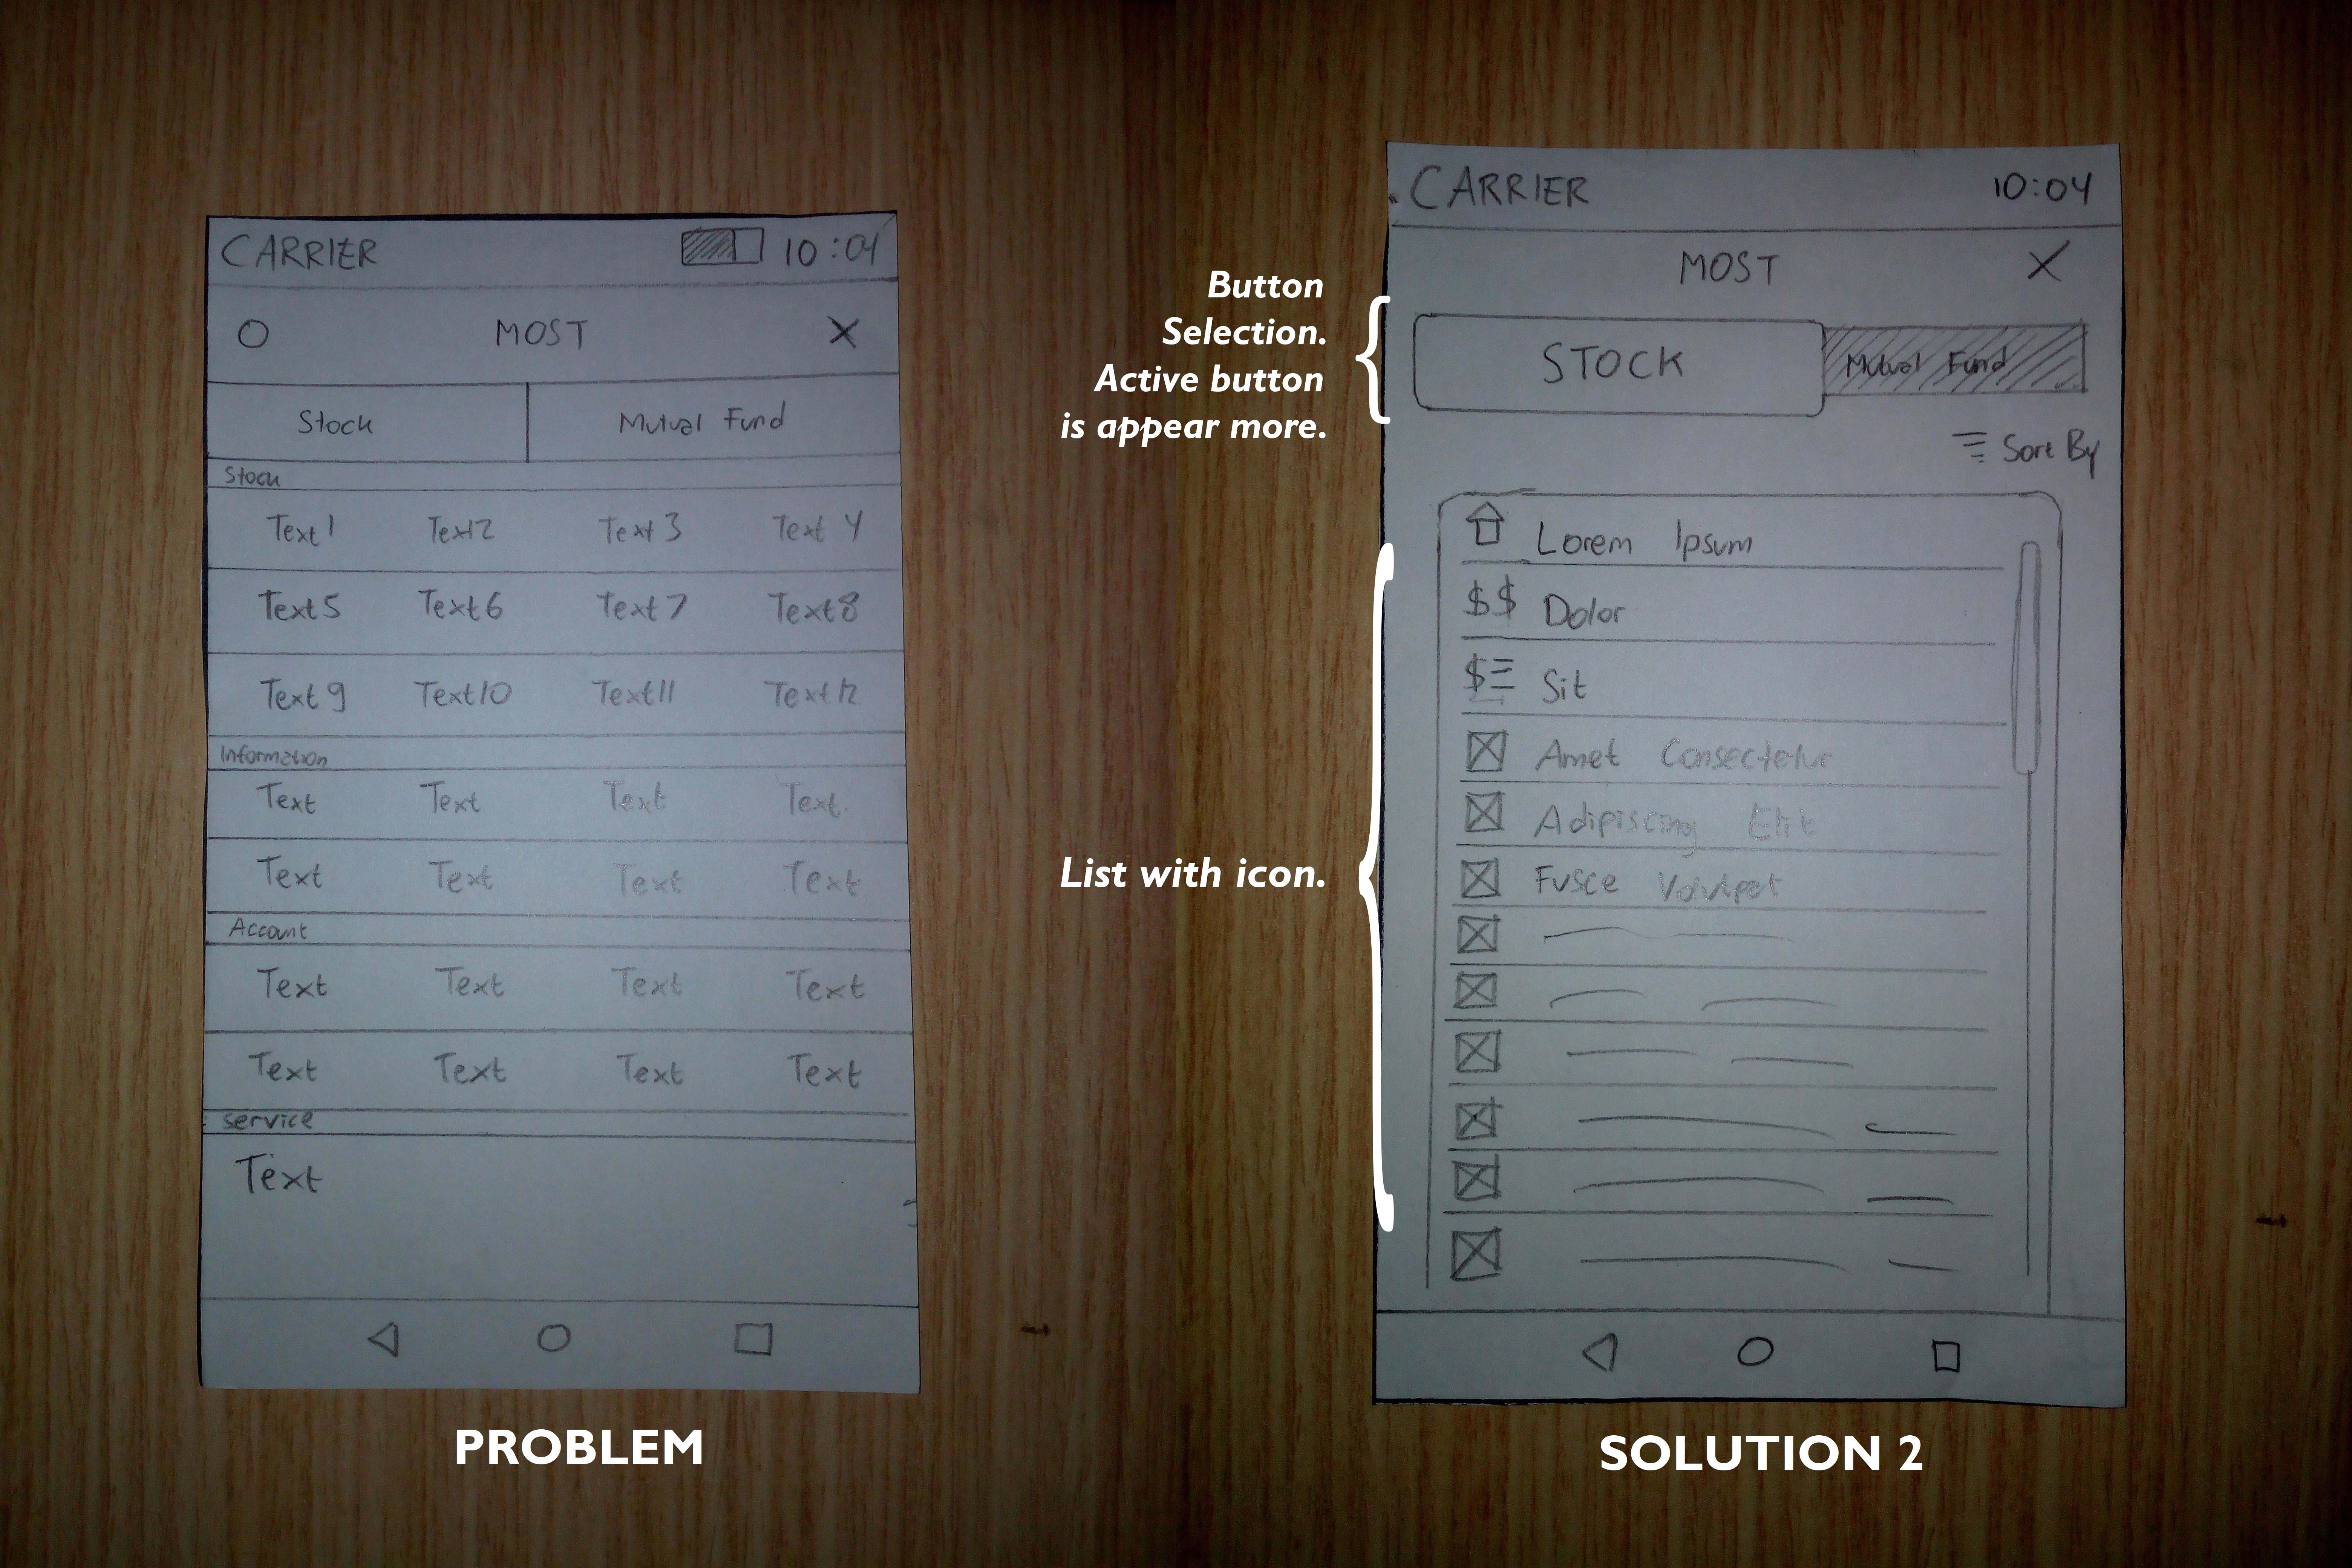 CARRIER 10:04
MOST X
Stock Mutual Fund
Stock
Text1 Text2 Text3 Text 4
Text5 Text6 Text7 Text8
Text9 Text10 Text11 Text12
Information
Text Text Text Text
Text Text Text Text
Account
Text Text Text Text
Text Text Text Text
service
Text
PROBLEM
Button
Selection.
Active button
is appear more.
List with icon.
CARRIER 10:04
MOST X
STOCK Mutual Fund
Sort By
Lorem Ipsum
$$ Dolor
$ Sit
Amet Consectetur
Adipiscing Elit
Fusce Volutpat
SOLUTION 2